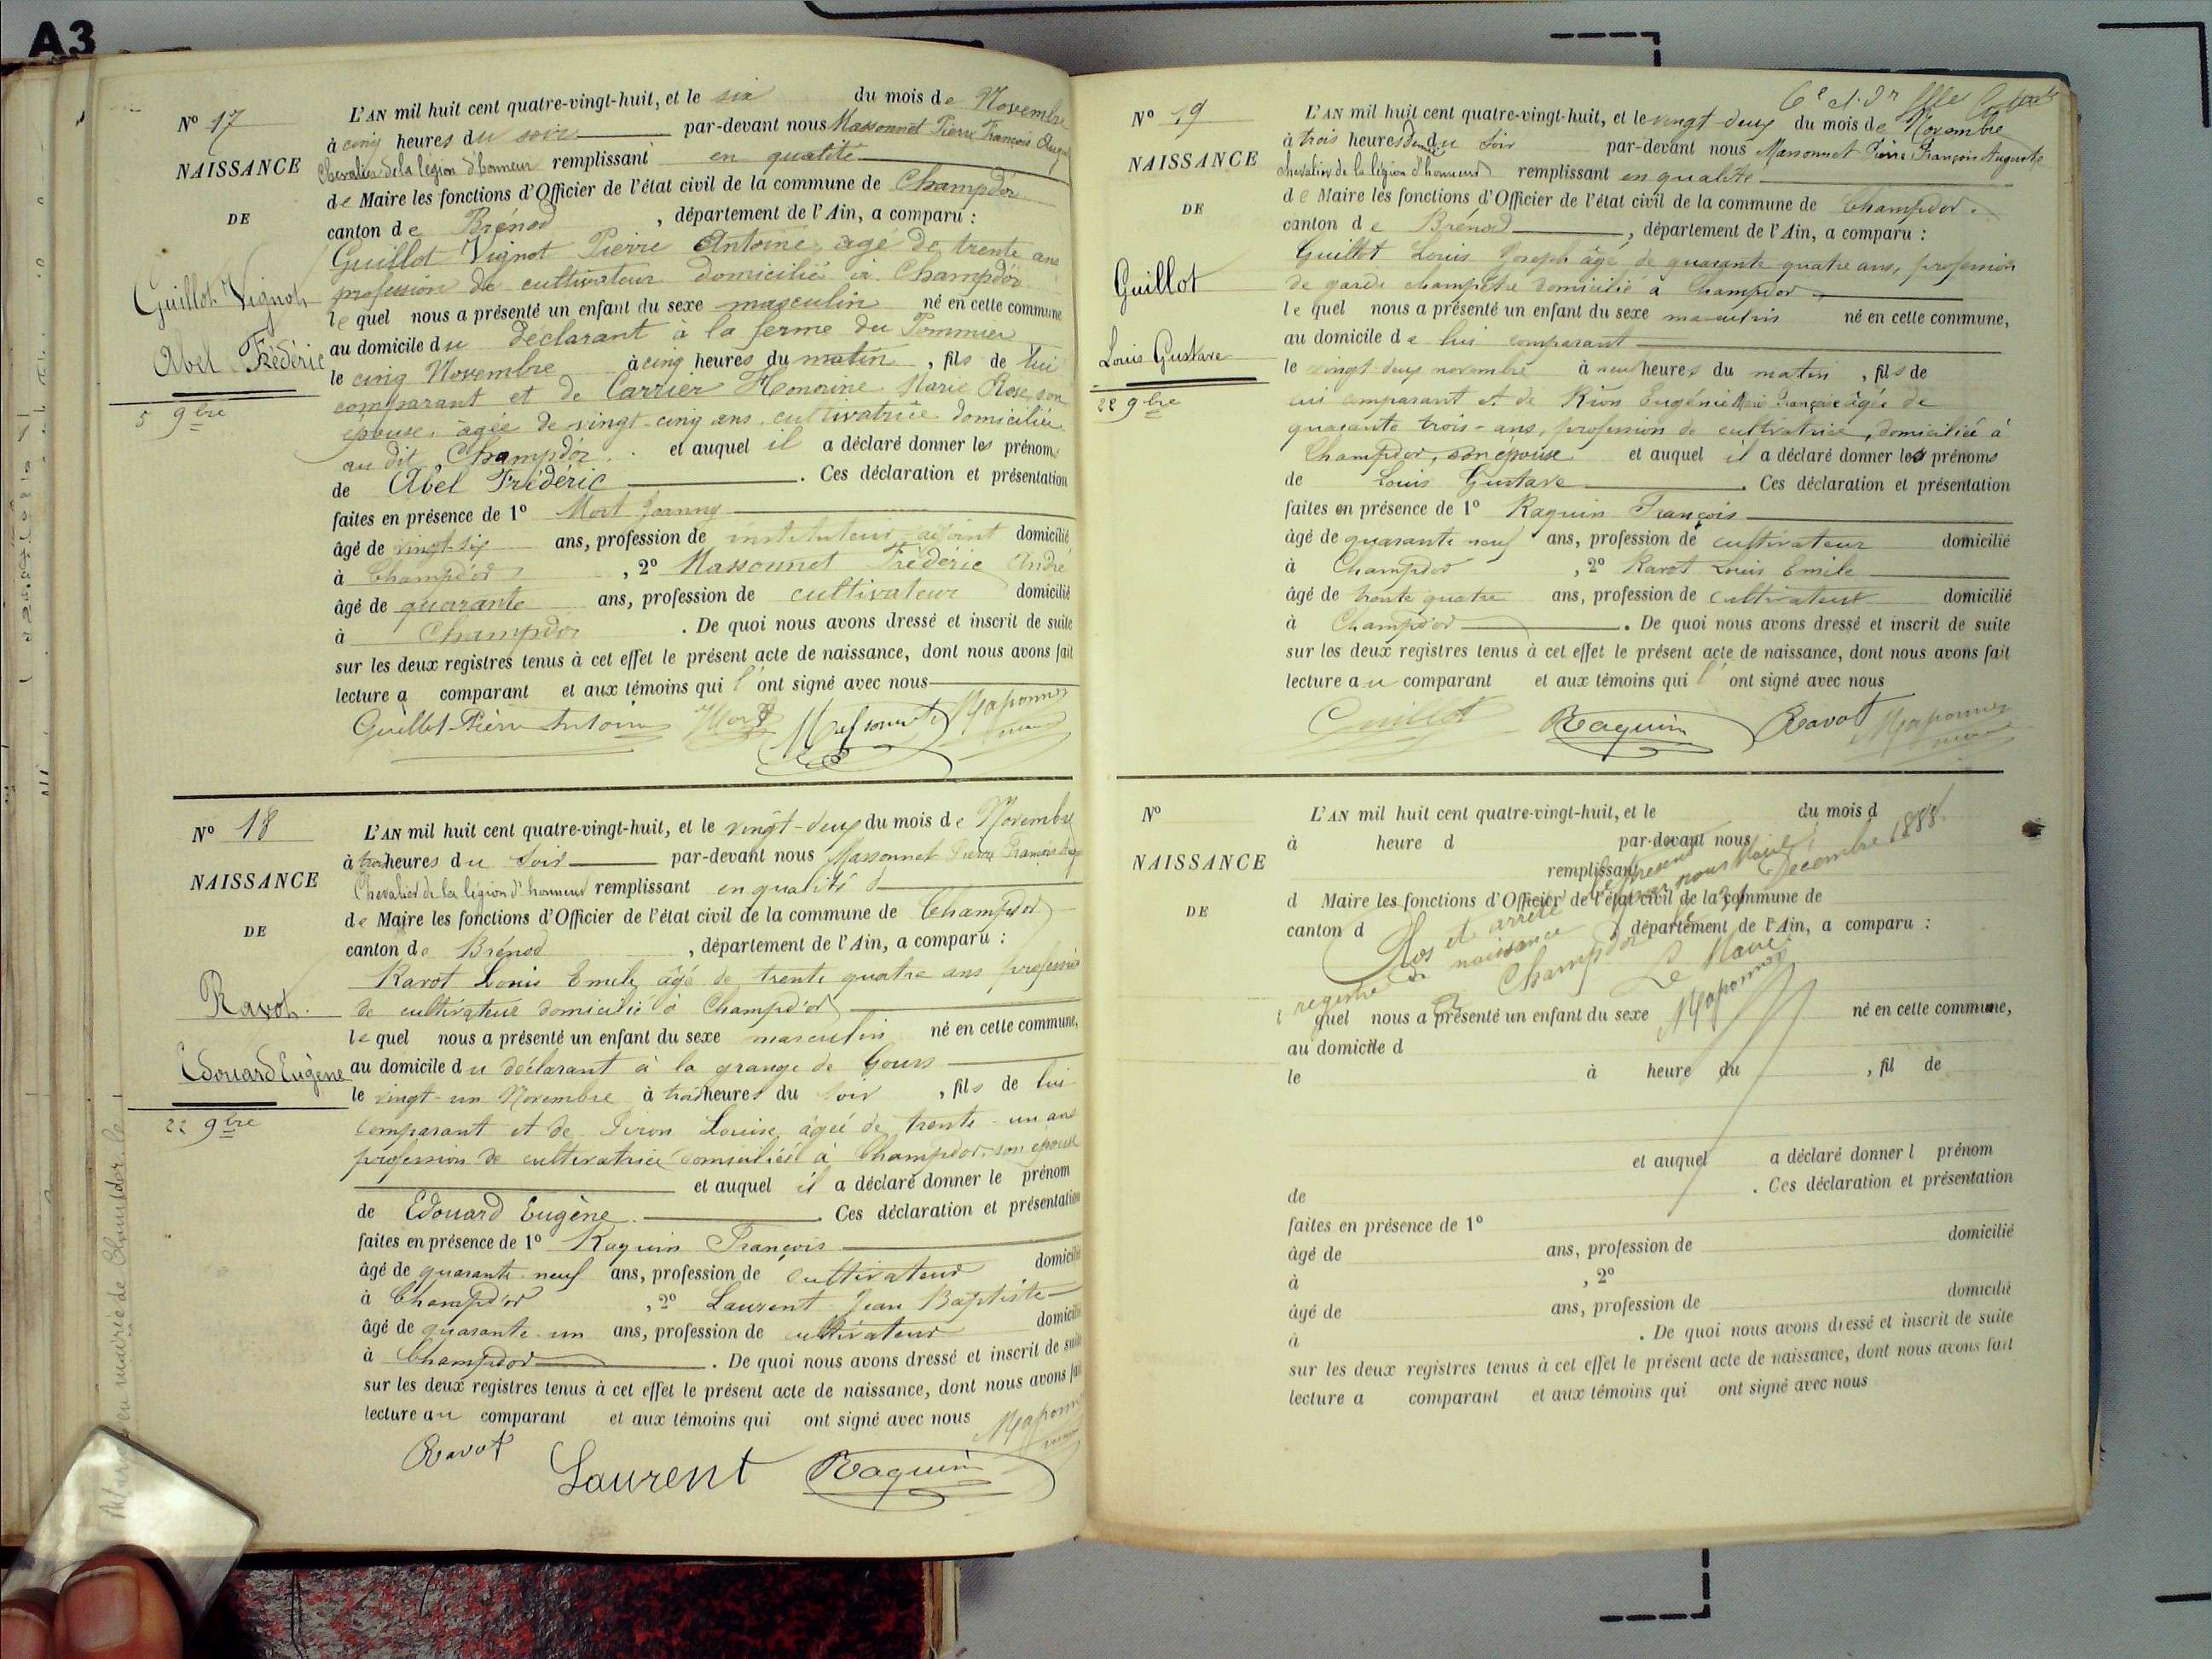 A3
N° 17
NAISSANCE
DE
Guillot Vignot
Abel Frédéric
5 9bre
L'AN mil huit cent quatre-vingt-huit, et le six du mois de Novembre
à cinq heures du soir par-devant nous Massonnet Pierre François
Chevalier de la légion d'honneur remplissant en qualité
de Maire les fonctions d'Officier de l'état civil de la commune de Champdor
canton de Brénod, département de l'Ain, a comparu :
Guillot Vignot Pierre Antoine, âgé de trente ans
profession de cultivateur domicilié à Champdor
lequel nous a présenté un enfant du sexe masculin né en cette commune
au domicile du déclarant à la ferme du Pommier
le cinq Novembre à cinq heures du matin, fils de lui
comparant et de Carrier Honorine Marie Rose, son
épouse, âgée de vingt-cinq ans, cultivatrice domiciliée
au dit Champdor. et auquel il a déclaré donner les prénoms
de Abel Frédéric . Ces déclaration et présentation
faites en présence de 1° Mort Joanny
âgé de vingt-six ans, profession de instituteur adjoint domicilié
à Champdor, 2° Massonnet Frédéric André
âgé de quarante ans, profession de cultivateur domicilié
à Champdor . De quoi nous avons dressé et inscrit de suite
sur les deux registres tenus à cet effet le présent acte de naissance, dont nous avons fait
lecture a comparant et aux témoins qui l'ont signé avec nous
Guillot Pierre Antoine Mort Massonnet Massonnet
N° 18
NAISSANCE
DE
Ravot
Edouard Eugène
22 9bre
L'AN mil huit cent quatre-vingt-huit, et le vingt-deux du mois de Novembre
à trois heures du soir par-devant nous Massonnet Pierre François
Chevalier de la légion d'honneur remplissant en qualité
de Maire les fonctions d'Officier de l'état civil de la commune de Champdor
canton de Brénod, département de l'Ain, a comparu :
Ravot Louis Emile, âgé de trente quatre ans profession
de cultivateur domicilié à Champd'or
lequel nous a présenté un enfant du sexe masculin né en cette commune,
au domicile du déclarant à la grange de Gours
le vingt-un Novembre à trois heures du soir, fils de lui
comparant et de Louise, âgée de trente un ans
profession de cultivatrice domiciliée à Champdor, son épouse
et auquel il a déclaré donner le prénom
de Edouard Eugène . Ces déclaration et présentation
faites en présence de 1° Raquin François
âgé de quarante neuf ans, profession de cultivateur domicilié
à Champd'or, 2° Laurent Jean Baptiste
âgé de quarante un ans, profession de cultivateur domicilié
à Champdor . De quoi nous avons dressé et inscrit de suite
sur les deux registres tenus à cet effet le présent acte de naissance, dont nous avons fait
lecture au comparant et aux témoins qui ont signé avec nous
Ravot Laurent Raquin Massonnet
en mairie de Champdor, le
N° 19
NAISSANCE
DE
Guillot
Louis Gustave
22 9bre
L'AN mil huit cent quatre-vingt-huit, et le vingt-deux du mois de Novembre
à trois heures du soir par-devant nous Massonnet Pierre François Auguste
chevalier de la légion d'honneur remplissant en qualité
de Maire les fonctions d'Officier de l'état civil de la commune de Champdor.
canton de Brénod, département de l'Ain, a comparu :
Guillot Louis Joseph âgé de quarante quatre ans, profession
de garde champêtre domicilié à Champdor
lequel nous a présenté un enfant du sexe masculin né en cette commune,
au domicile de lui comparant
le vingt-deux novembre à neuf heures du matin, fils de
lui comparant et de Rion Eugénie Marie Françoise âgée de
quarante trois-ans, profession de cultivatrice, domiciliée à
Champdor, son épouse et auquel il a déclaré donner les prénoms
de Louis Gustave . Ces déclaration et présentation
faites en présence de 1° Raquin François
âgé de quarante neuf ans, profession de cultivateur domicilié
à Champdor, 2° Ravot Louis Emile
âgé de trente quatre ans, profession de cultivateur domicilié
à Champd'or . De quoi nous avons dressé et inscrit de suite
sur les deux registres tenus à cet effet le présent acte de naissance, dont nous avons fait
lecture au comparant et aux témoins qui l'ont signé avec nous
Guillot Raquin Ravot Massonnet
N°
NAISSANCE
DE
L'AN mil huit cent quatre-vingt-huit, et le du mois d
à heure d par-devant nous
remplissant
d Maire les fonctions d'Officier de l'état civil de la commune de
canton d département de l'Ain, a comparu :
Clos et arrêté le présent
registre de naissance par nous Maire
à Champdor le 31 Décembre 1888.
Le Maire
Massonnet
l quel nous a présenté un enfant du sexe né en cette commune,
au domicile d
le à heure du , fil de
et auquel a déclaré donner l prénom
de . Ces déclaration et présentation
faites en présence de 1°
âgé de ans, profession de domicilié
à , 2°
âgé de ans, profession de domicilié
à . De quoi nous avons dressé et inscrit de suite
sur les deux registres tenus à cet effet le présent acte de naissance, dont nous avons fait
lecture a comparant et aux témoins qui ont signé avec nous